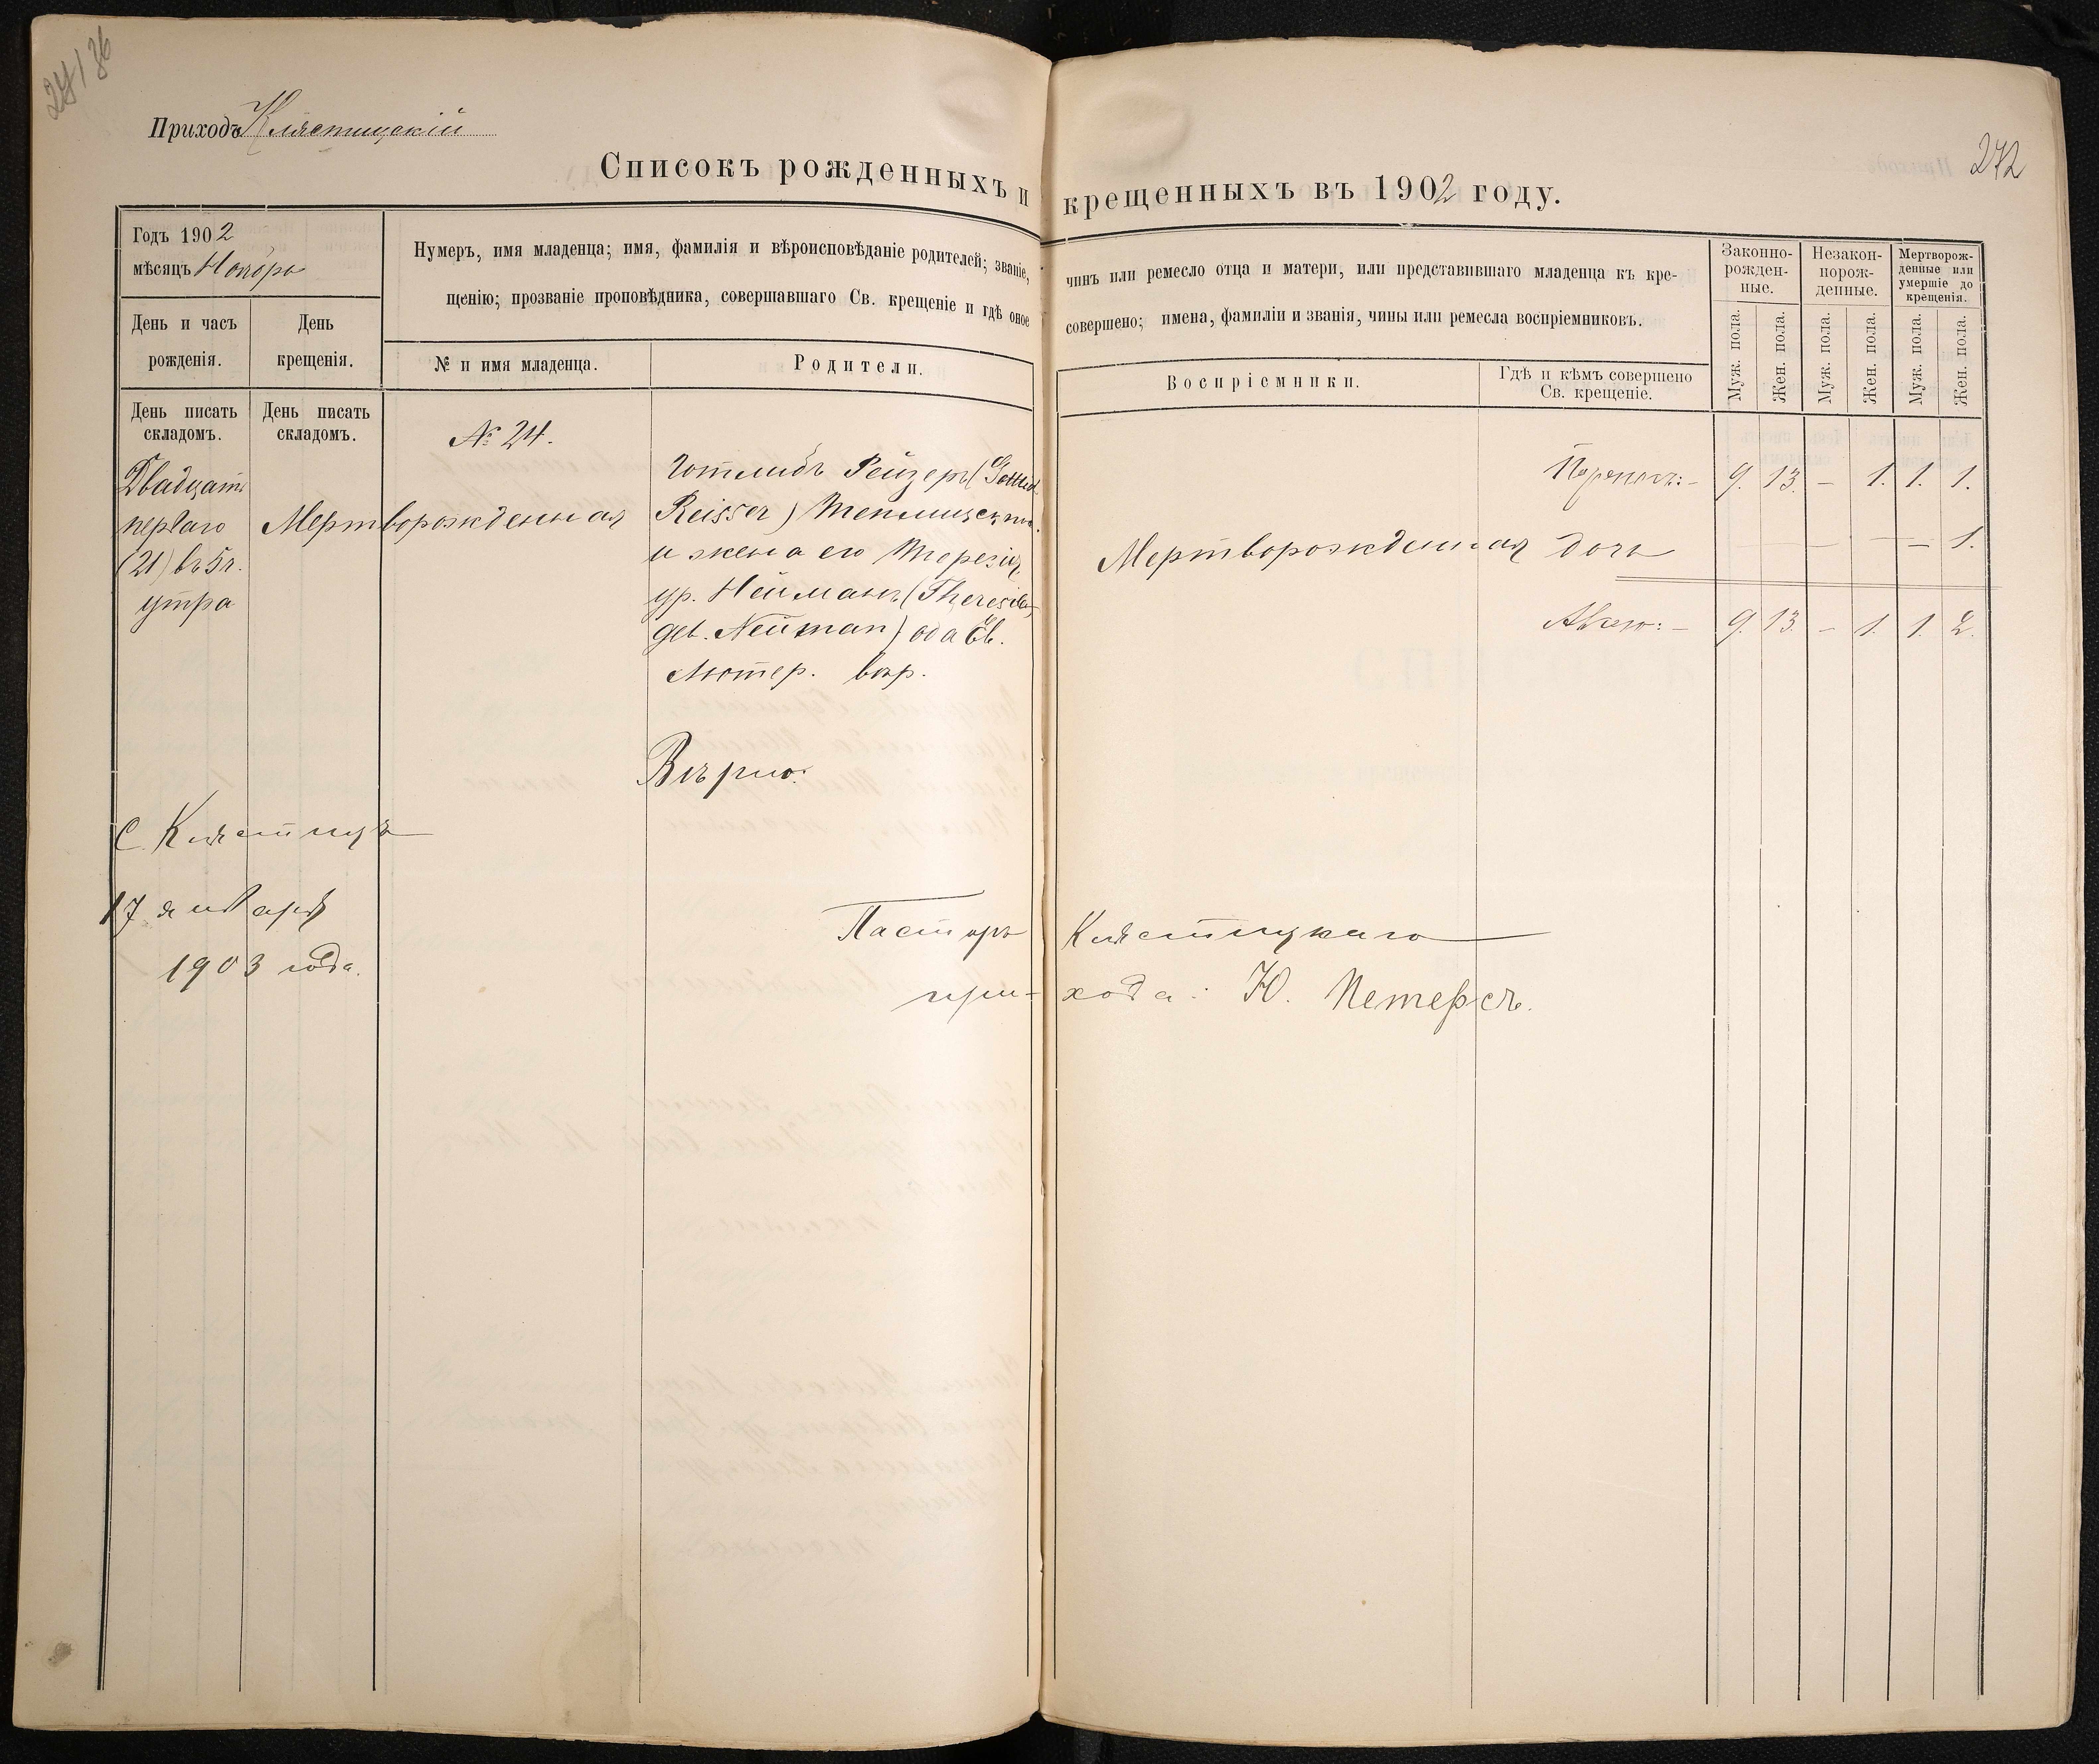 Приходъ Клястицкій
272
Списокъ рожденныхъ и крещенныхъ въ 1902 году.
Годъ 1902
мѣсяцъ Ноябрь
Нумеръ, имя младенца; имя, фамилія и вѣроисповѣданіе родителей; званіе, чинъ или ремесло отца и матери, или представившаго младенца къ кре-
щенію; прозваніе проповѣдника, совершавшаго Св. крещеніе и гдѣ оное совершено; имена, фамиліи и званія, чины или ремесла воспріемниковъ.
Законно-
рожден-
ные.
Незакон-
норож-
денные.
Мертворож-
денные или
умершіе до
крещенія.
День и часъ
рожденія.
День
крещенія.
№ и имя младенца.
Родители.
Воспріемники.
Гдѣ и кѣмъ совершено
Св. крещеніе.
Муж. пола.
Жен. пола.
Муж. пола.
Жен. пола.
Муж. пола.
Жен. пола.
День писать
складомъ.
День писать
складомъ.
№ 24.
Двадцать
перваго
(21) въ 5 ч.
утра
Мертворожденная
Готлибъ Рейзеръ (Gottlieb
Reisser) Теплицскій
и жена его Терезія,
ур. Нейманъ (Theresia,
geb. Neuman) оба Ев.
Лютер. вѣр.
Переносъ: – 9. 13. – 1. 1. 1.
Мертворожденная дочь — — — 1.
Итого: – 9. 13. – 1. 1. 2.
Вѣрно:
С. Клястицъ
17 января
1903 года.
Пасторъ Клястицкаго
при-хода: Ю. Петерсъ.